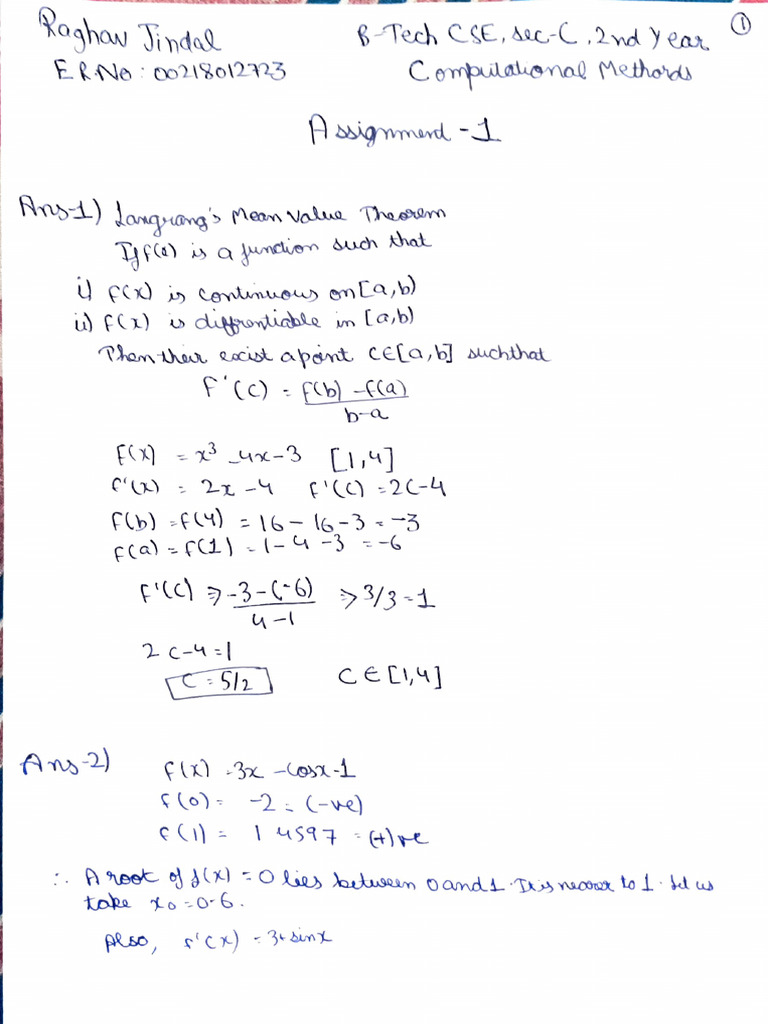 ①
Raghav Jindal B-Tech CSE, sec-C, 2nd Year
E R.No: 00218012723 Computational Methords
Assignmend -1
Ans-1) Langrang's Mean value Theorem
If f(a) is a function such that
i) f(x) is continuous on [a,b)
ii) f(x) is diffrentiable in [a,b)
Then their excist a point C∈[a,b] such that
f'(c) = f(b) -f(a)
b-a
f(x) = x³ -4x-3 [1,4]
f'(x) = 2x -4 f'(c) =2c-4
f(b) = f(4) = 16 - 16-3 = -3
f(a) = f(1) = 1- 4 -3 = -6
f'(c) ⇒ -3-(-6) ⇒ 3/3 = 1
4-1
2c-4=1
C = 5/2 C∈[1,4]
Ans-2) f(x) = 3x -cosx-1
f(0) = -2 = (-ve)
f(1) = 1 4597 = (+)ve
∴ A root of f(x) = 0 lies between 0 and 1. It is nearer to 1. Let us
take x₀=0.6.
Also, f'(x) = 3+sinx